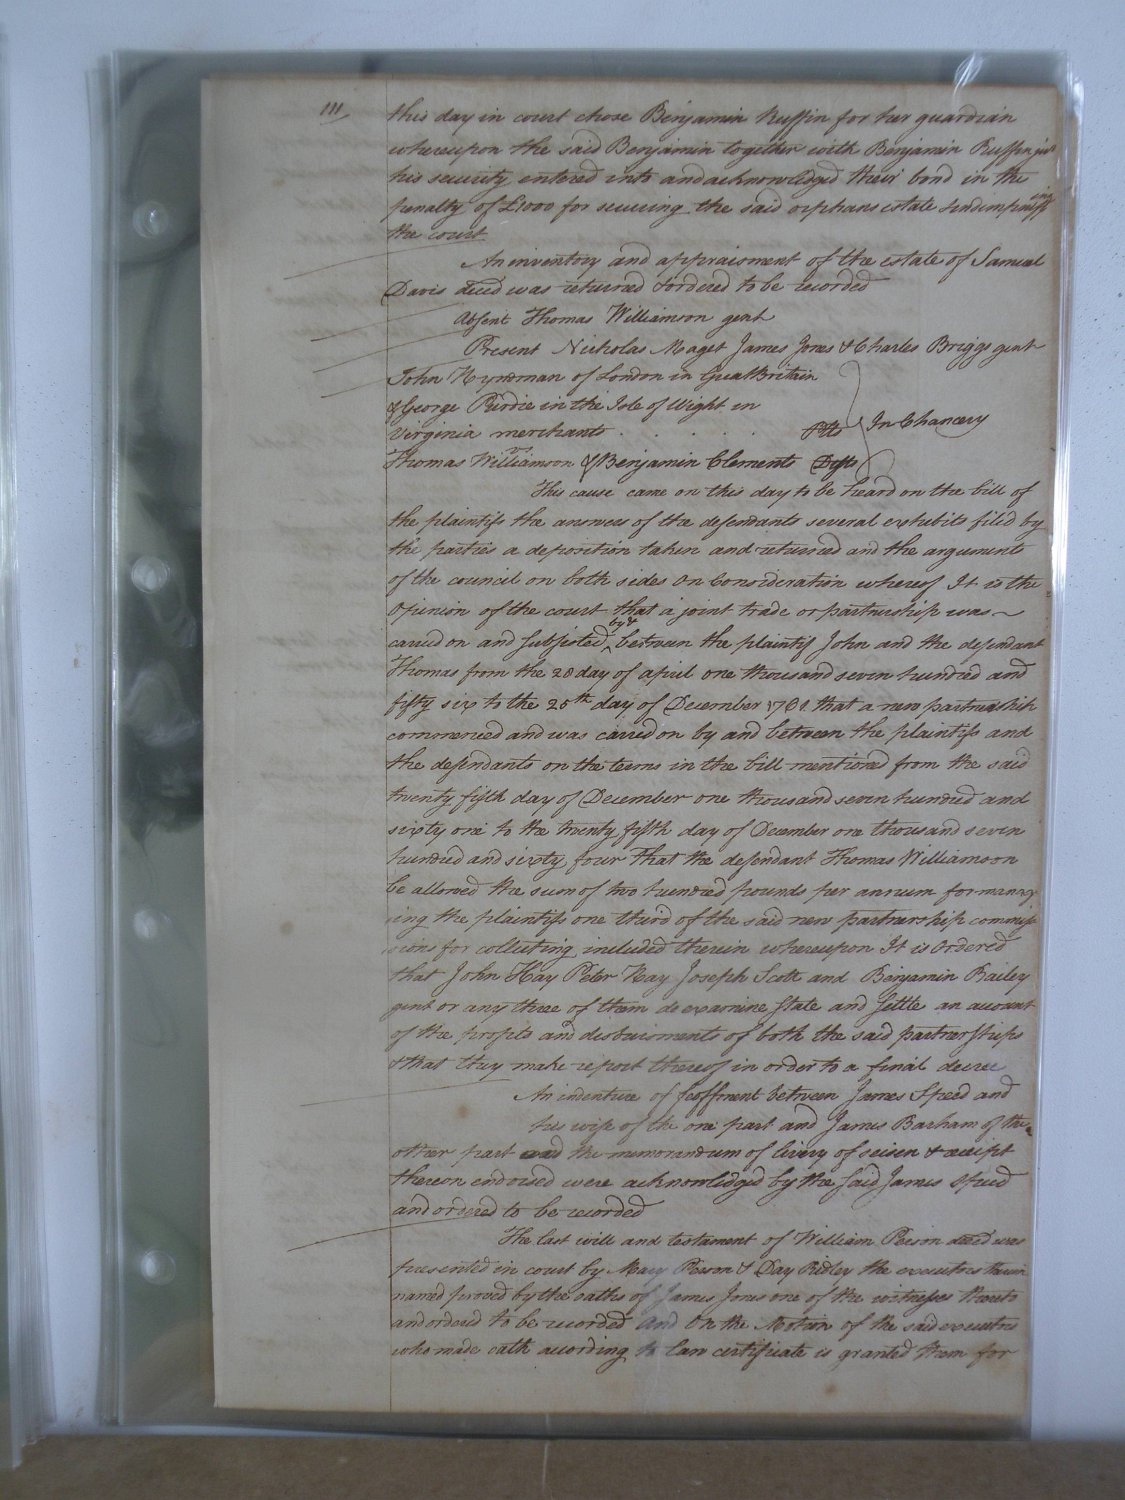 111
this day in court chose Benjamin Ruffin for her guardian
whereupon the said Benjamin together with Benjamin Ruffin junr
his security entered into and acknowledged their bond in the
penalty of £1000 for securing the said orphans estate & indempnifying
the court
An inventory and appraisment of the estate of Samuel
Davis deced was returned & ordered to be recorded
Absent Thomas Williamson gent
Present Nicholas Maget James Jones & Charles Briggs gent
John Hyndman of London in Great Britain
& George Purdie in the Isle of Wight in
Virginia merchants . . . . . Plts In Chancery
Thomas Williamson & Benjamin Clements Defts
This cause came on this day to be heard on the bill of
the plaintifs the answers of the defendants several exhibits filed by
the parties a deposition taken and returned and the arguments
of the council on both sides On Consideration whereof It is the
Opinion of the court that a joint trade or partnership was
carried on and subsisted by & between the plaintif John and the defendant
Thomas from the 28 day of april one thousand seven hundred and
fifty six to the 25th day of December 1761 that a new partnership
commenced and was carried on by and between the plaintifs and
the defendants on the terms in the bill mentioned from the said
twenty fifth day of December one thousand seven hundred and
sixty one to the twenty fifth day of December one thousand seven
hundred and sixty four That the defendant Thomas Williamson
be allowed the sum of two hundred pounds per annum for manag
ing the plaintifs one third of the said new partnership commis
sions for collecting included therein whereupon It is Ordered
that John Hay Peter Hay Joseph Scott and Benjamin Bailey
gent or any three of them do examine state and settle an account
of the profits and disbursments of both the said partnerships
& that they make report thereof in order to a final decree
An indenture of feoffment between James Speed and
his wife of the one part and James Barham of the
other part and the memorandum of livery of seisen & receipt
thereon endorsed were acknowledged by the said James Speed
and ordered to be recorded
The last will and testament of William Person deced was
presented in court by Mary Person & Day Ridley the executors therein
named proved by the oaths of James Jones one of the witnesses thereto
and ordered to be recorded And On the Motion of the said executors
who made oath according to law certificate is granted them for